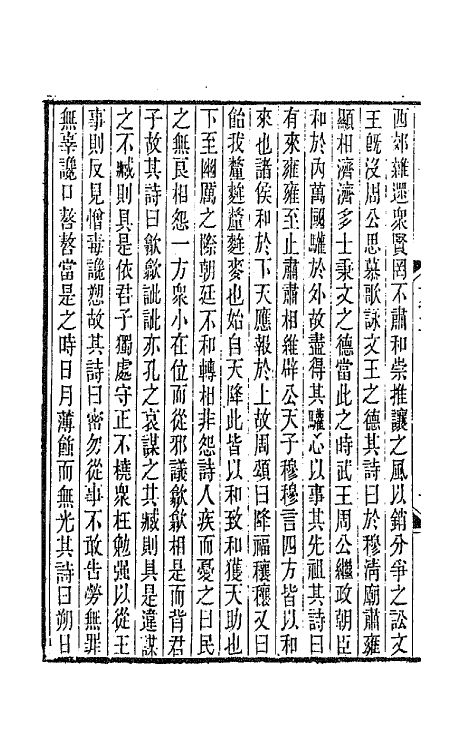 西郊雜遝衆賢罔不肅和崇推讓之風以銷分爭之訟文
王旣沒周公思慕歌詠文王之德其詩曰於穆清廟肅雍
顯相濟濟多士秉文之德當此之時武王周公繼政朝臣
和於内萬國驩於外故盡得其驩心以事其先祖其詩曰
有來雍雍至止肅肅相維辟公天子穆穆言四方皆以和
來也諸侯和於下天應報於上故周頌曰降福穰穰又曰
飴我釐麰釐麰麥也始自天降此皆以和致和獲天助也
下至幽厲之際朝廷不和轉相非怨詩人疾而憂之曰民
之無良相怨一方衆小在位而從邪議歙歙相是而背君
子故其詩曰歙歙訿訿亦孔之哀謀之其臧則具是違謀
之不臧則具是依君子獨處守正不橈衆枉勉强以從王
事則反見憎毒讒愬故其詩曰密勿從事不敢告勞無罪
無辜讒口嗸嗸當是之時日月薄蝕而無光其詩曰朔日